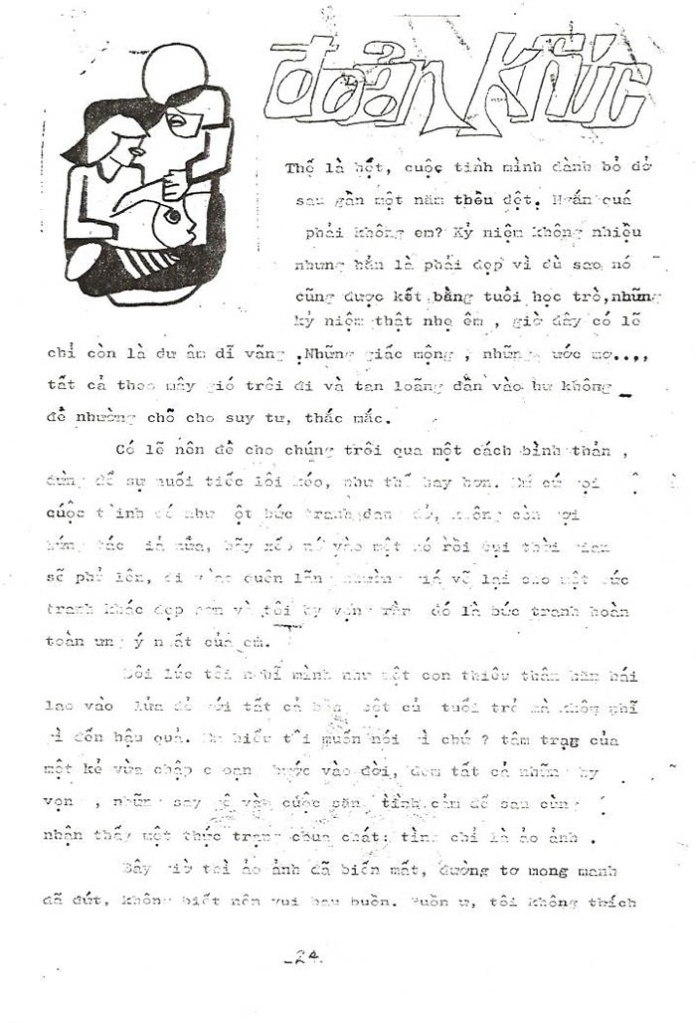 đoản khúc
Thế là hết, cuộc tình mình đành bỏ dở
sau gần một năm thêu dệt. Ngắn quá
phải không em? Kỷ niệm không nhiều
nhưng hẳn là phải đẹp vì dù sao nó
cũng được kết bằng tuổi học trò,những
kỷ niệm thật nhẹ êm , giờ đây có lẽ
chỉ còn là dư âm dĩ vãng .Những giấc mộng , những ước mơ...,
tất cả theo mây gió trôi đi và tan loãng dần vào hư không
để nhường chỗ cho suy tư, thắc mắc.
Có lẽ nên để cho chúng trôi qua một cách bình thản ,
đừng để sự nuối tiếc lôi kéo, như thế hay hơn.
cuộc tình như một bức tranh dang dở, không còn
nữa, hãy xếp nó vào một xó rồi bụi thời gian
sẽ phủ lên, đi vào quên lãng vẽ lại cho một bức
tranh khác đẹp hơn và tôi hy vọng rằng đó là bức tranh hoàn
toàn ưng ý nhất của em.
Đôi lúc tôi nghĩ mình như một con thiêu thân hăng hái
lao vào lửa đỏ với tất cả bồng bột của tuổi trẻ mà không nghĩ
gì đến hậu quả. Em hiểu tôi muốn nói gì chứ ? tâm trạng của
một kẻ vừa chập choạng bước vào đời, đem tất cả những hy
vọng , những say mê vào cuộc sống tình cảm để sau cùng
nhận thấy một thực trạng chua chát: tình chỉ là ảo ảnh .
Bây giờ thì ảo ảnh đã biến mất, đường tơ mong manh
đã đứt, không biết nên vui hay buồn. Buồn ư, tôi không thích
_24.